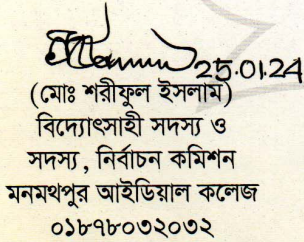 25.01.24
(মোঃ শরীফুল ইসলাম)
বিদ্যোৎসাহী সদস্য ও
সদস্য, নির্বাচন কমিশন
মনমথপুর আইডিয়াল কলেজ
০১৮৭৮০৩২০৩২